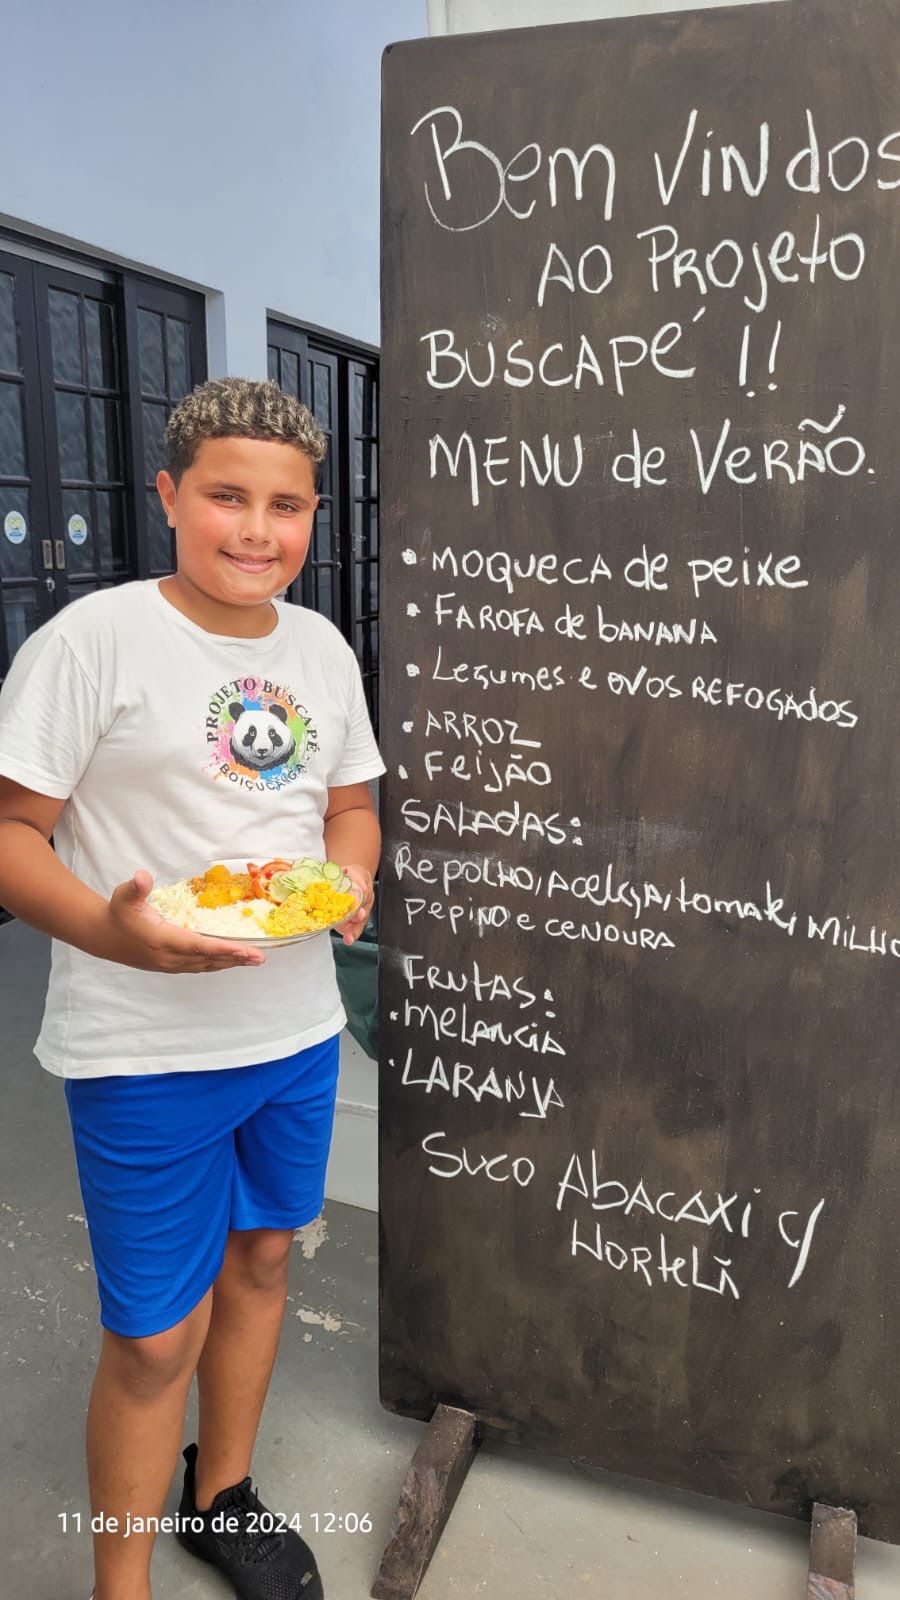 Bem Vindos
AO PROJeto
BUSCAPé !!
MENU de VERÃO.
• MOQUECA de peixe
• FAROFA de bANANA
• Legumes e OVOS REFOGAdOS
• ARROZ
• FeijÃO
SALAdAS:
RepOLHO, Acelga, tomate, MILHO
pepino e CENOURA
FRUTAS:
• MeLANCiA
• LARANJA
SUCO AbACAXi c/
HORteLÃ
PROJETO BUSCAPÉ
BOIÇUCANGA
11 de janeiro de 2024 12:06